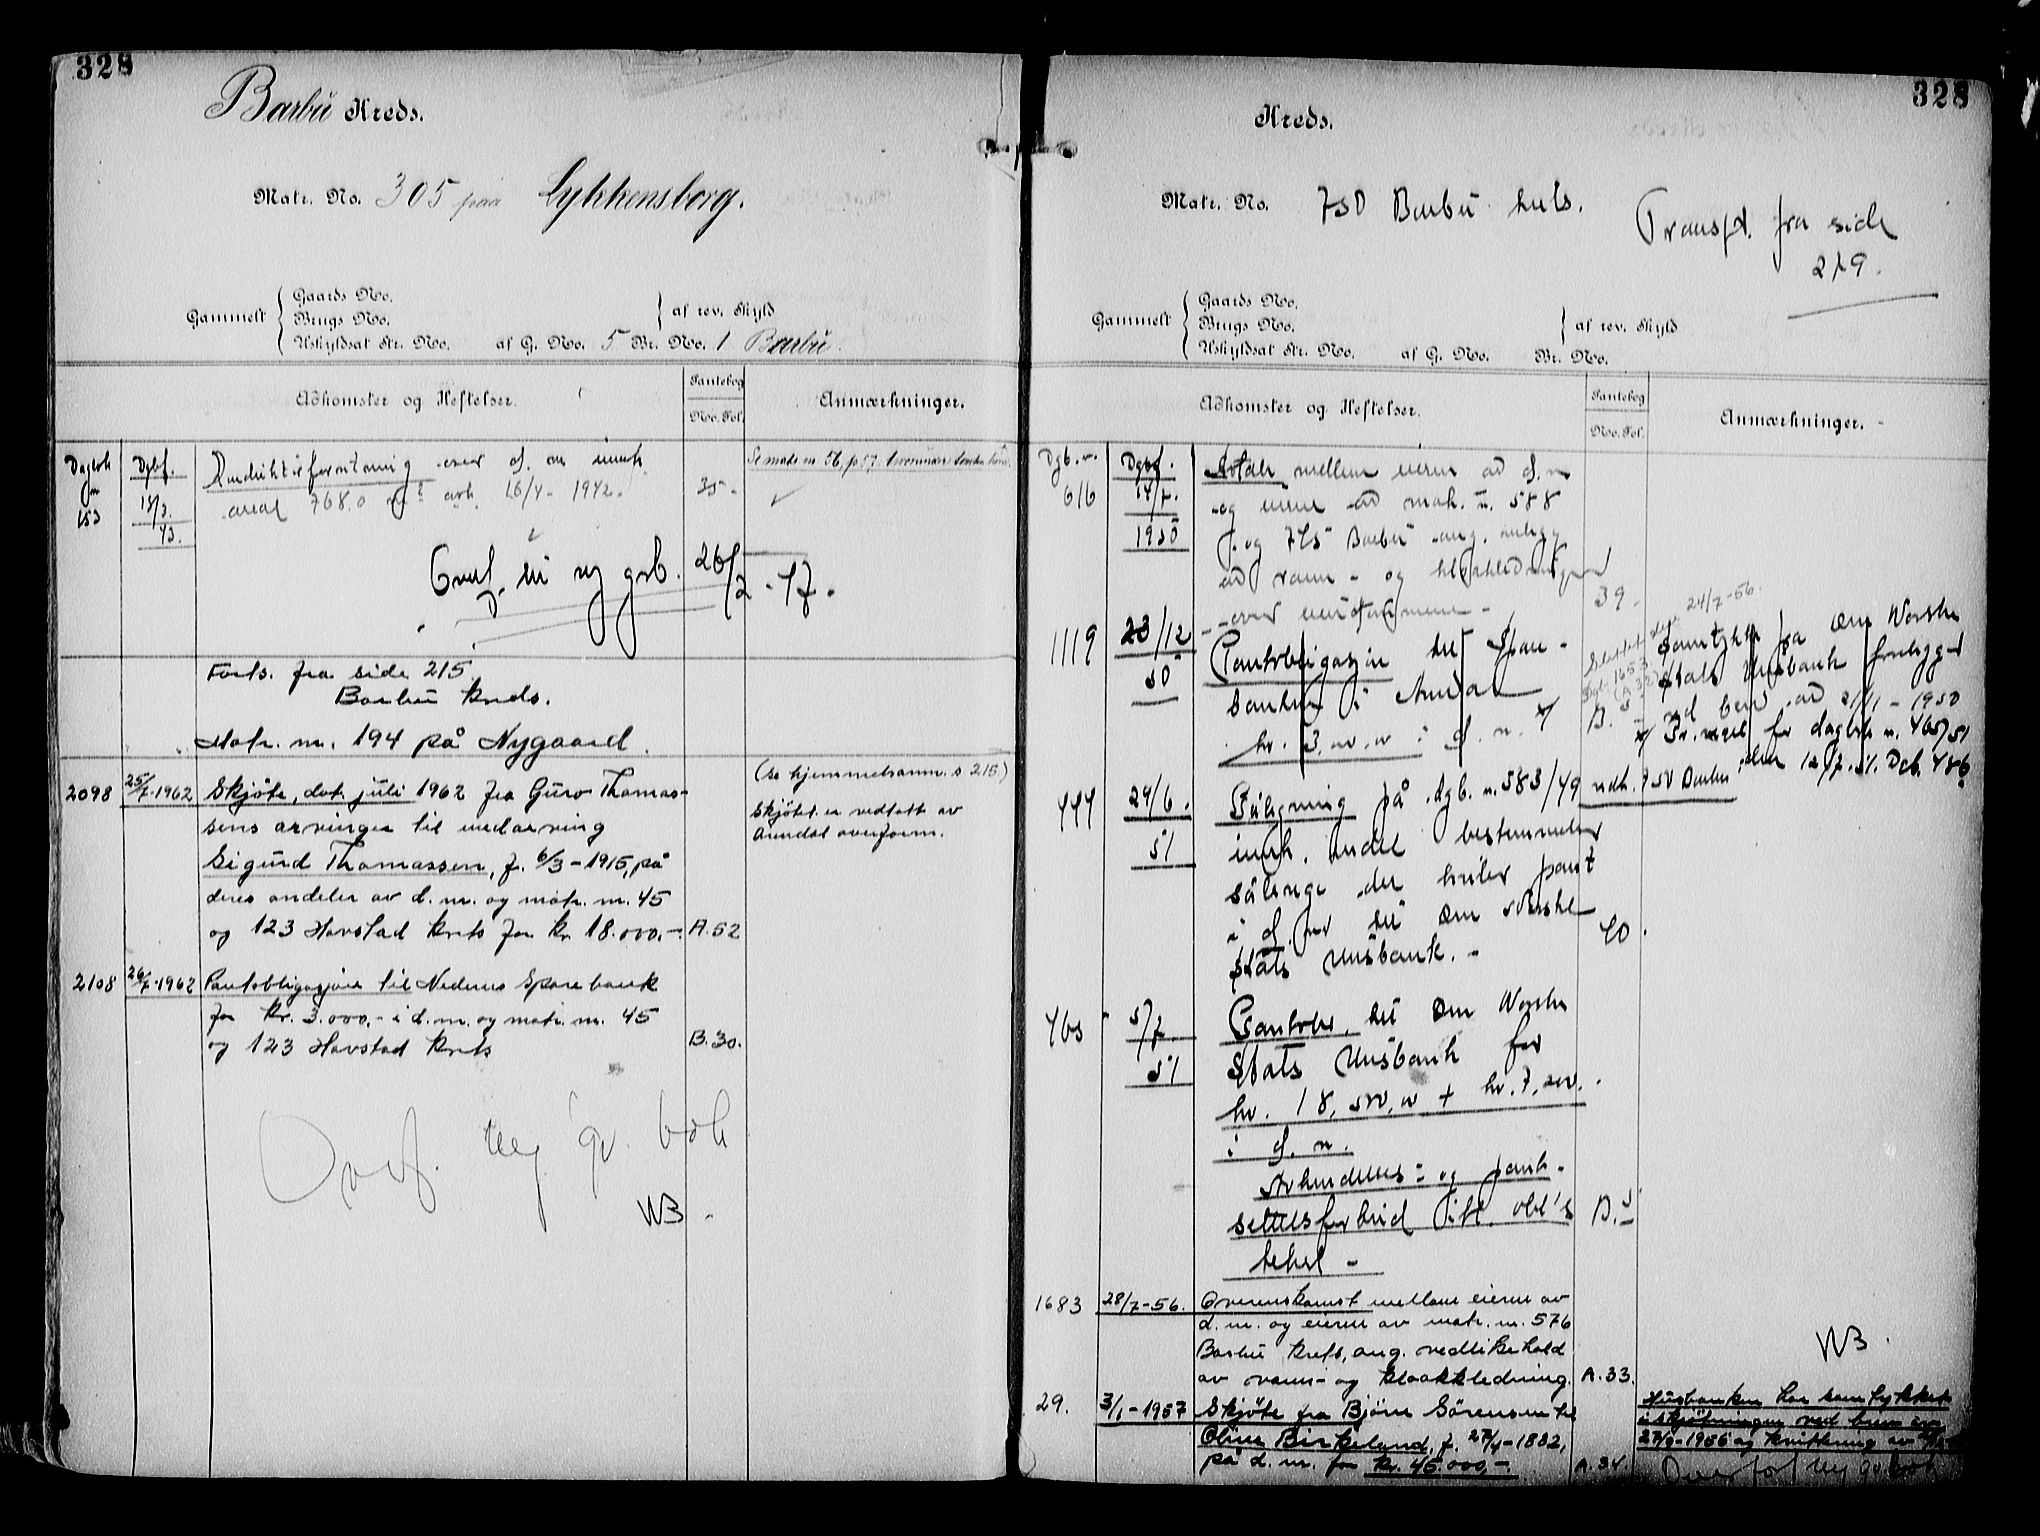 328
Barbu Kreds.
Matr. No. 305 paa Lykkensborg.
Gammelt
Gaards No.
Brugs No.
Uskyldsat Str. No. af G. No. 5 Br. No. 1 Barbu.
af rev. Skyld
Adkomster og Heftelser.
Pantebog
No. Fol.
Anmærkninger.
Dagbok nr 153
Dgbf. 18/3. 43.
over d. nr. innh.
areal 768.0 m2 avh. 16/4-1942.
35-
Se matr. nr. 56, p 57
Overf. til ny grb. 26/2-47.
Forts. fra side 215.
Barbu krets.
Matr. nr. 194 på Nygaard.
2098
25/7-1962
Skjöte, dat. juli 1962 fra Guro Thomas-
sens arvinger til medarving
Sigurd Thomassen, f. 6/3-1915, på
deres andeler av d. nr. og matr. nr. 45
og 123 Havstad krets for kr 18.000,-.
A.52
(se hjemmelsanm. s 215.)
Skjötet er vedtatt av
Arendal overform.
2108
26/7-1962
Pantobligasjon til Nedenes Sparebank
for kr. 3.000,- i d. nr. og matr. nr. 45
og 123 Havstad krets
B.30.
Overf. ny gr. bok
NB.
328
Kreds.
Matr. No. 750 Barbu krets.
Transp. fra side
279.
Gammelt
Gaards No.
Brugs No.
Uskyldsat Str. No. af G. No. Br. No.
af rev. Skyld
Adkomster og Heftelser.
Pantebog
No. Fol.
Anmærkninger.
Dgb. nr. 616
Dgbf. 14/7. 1950
Avtale mellem eieren av d. nr.
og eieren av matr. nr. 588
og 745 Barbu ang. anlegg
av vann- og kloakkledninger
over eiendommene -
39.
1119
23/12 50
Pantobligasjon til Spare-
banken i Arendal
kr. 3.000,00 i d. nr.
B. 5
24/7-56.
Samtykke fra Den Norske
Stats Husbank foreligger
ved brev av 21/11-1950
Pr. viget for dagbok nr. 465/51
444
29/6. 51
Påtegning på dgb. nr. 383/49 vedk. 750 Barbu
innh. endel bestemmelser
sålenge det hviler pant
i d. nr. til Den Norske
Stats Husbank. -
40.
465
5/7 51
Pantobl. til Den Norske
Stats Husbank for
kr. 18.500,00 + kr. 7.000.
i d. nr.
Avhendelses- og pant-
settelsesforbud iflg. obl's
tekst -
B. 5
1683
28/7-56.
Overenskomst mellom eieren av
d. nr. og eieren av matr. nr. 576
Barbu krets, ang. vedlikehold
av vann- og kloakkledning.
A.33.
NB.
29.
3/1-1957
Skjöte fra Björn Sörensen til
Oline Birkeland, f. 27/4-1882,
på d. nr. for kr. 45.000,-.
A.34.
Husbanken har samtykket
i skjötningen ved brev av
27/9-1956 og
Overfört ny gr. bok